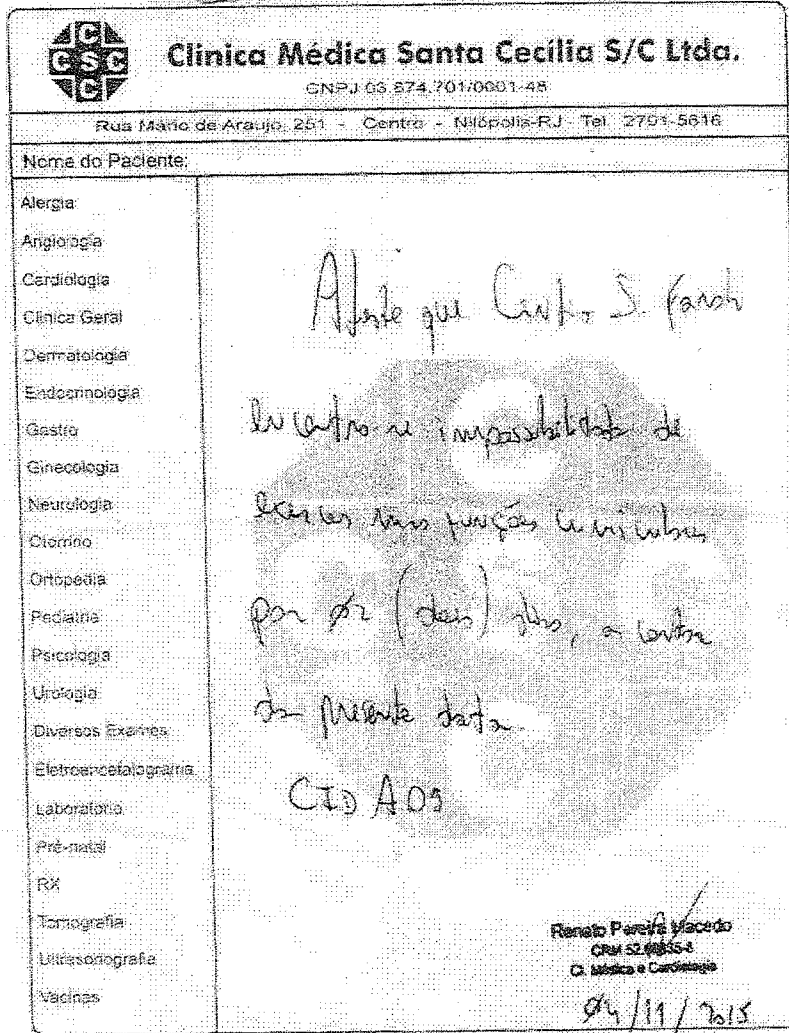 CSC
Clinica Médica Santa Cecília S/C Ltda.
CNPJ 03.874.701/0001-48
Rua Mário de Araujo, 251 - Centro - Nilópolis-RJ - Tel. 2791-5616
Nome do Paciente:
Alergia
Angiologia
Cardiologia
Clinica Geral
Dermatologia
Endocrinologia
Gastro
Ginecologia
Neurologia
Otorrino
Ortopedia
Pediatria
Psicologia
Urologia
Diversos Exames
Eletroencefalograma
Laboratorio
Pré-natal
RX
Tomografia
Ultrasonografia
Vacinas
Atesto que S.
encontra se impossibilitado de
exercer suas funções curriculares
por 02 (dois) dias, a contar
da presente data
CID A09
Renato Pereira Macedo
CRM
Cl. Médica e Cardiologia
04/11/2015